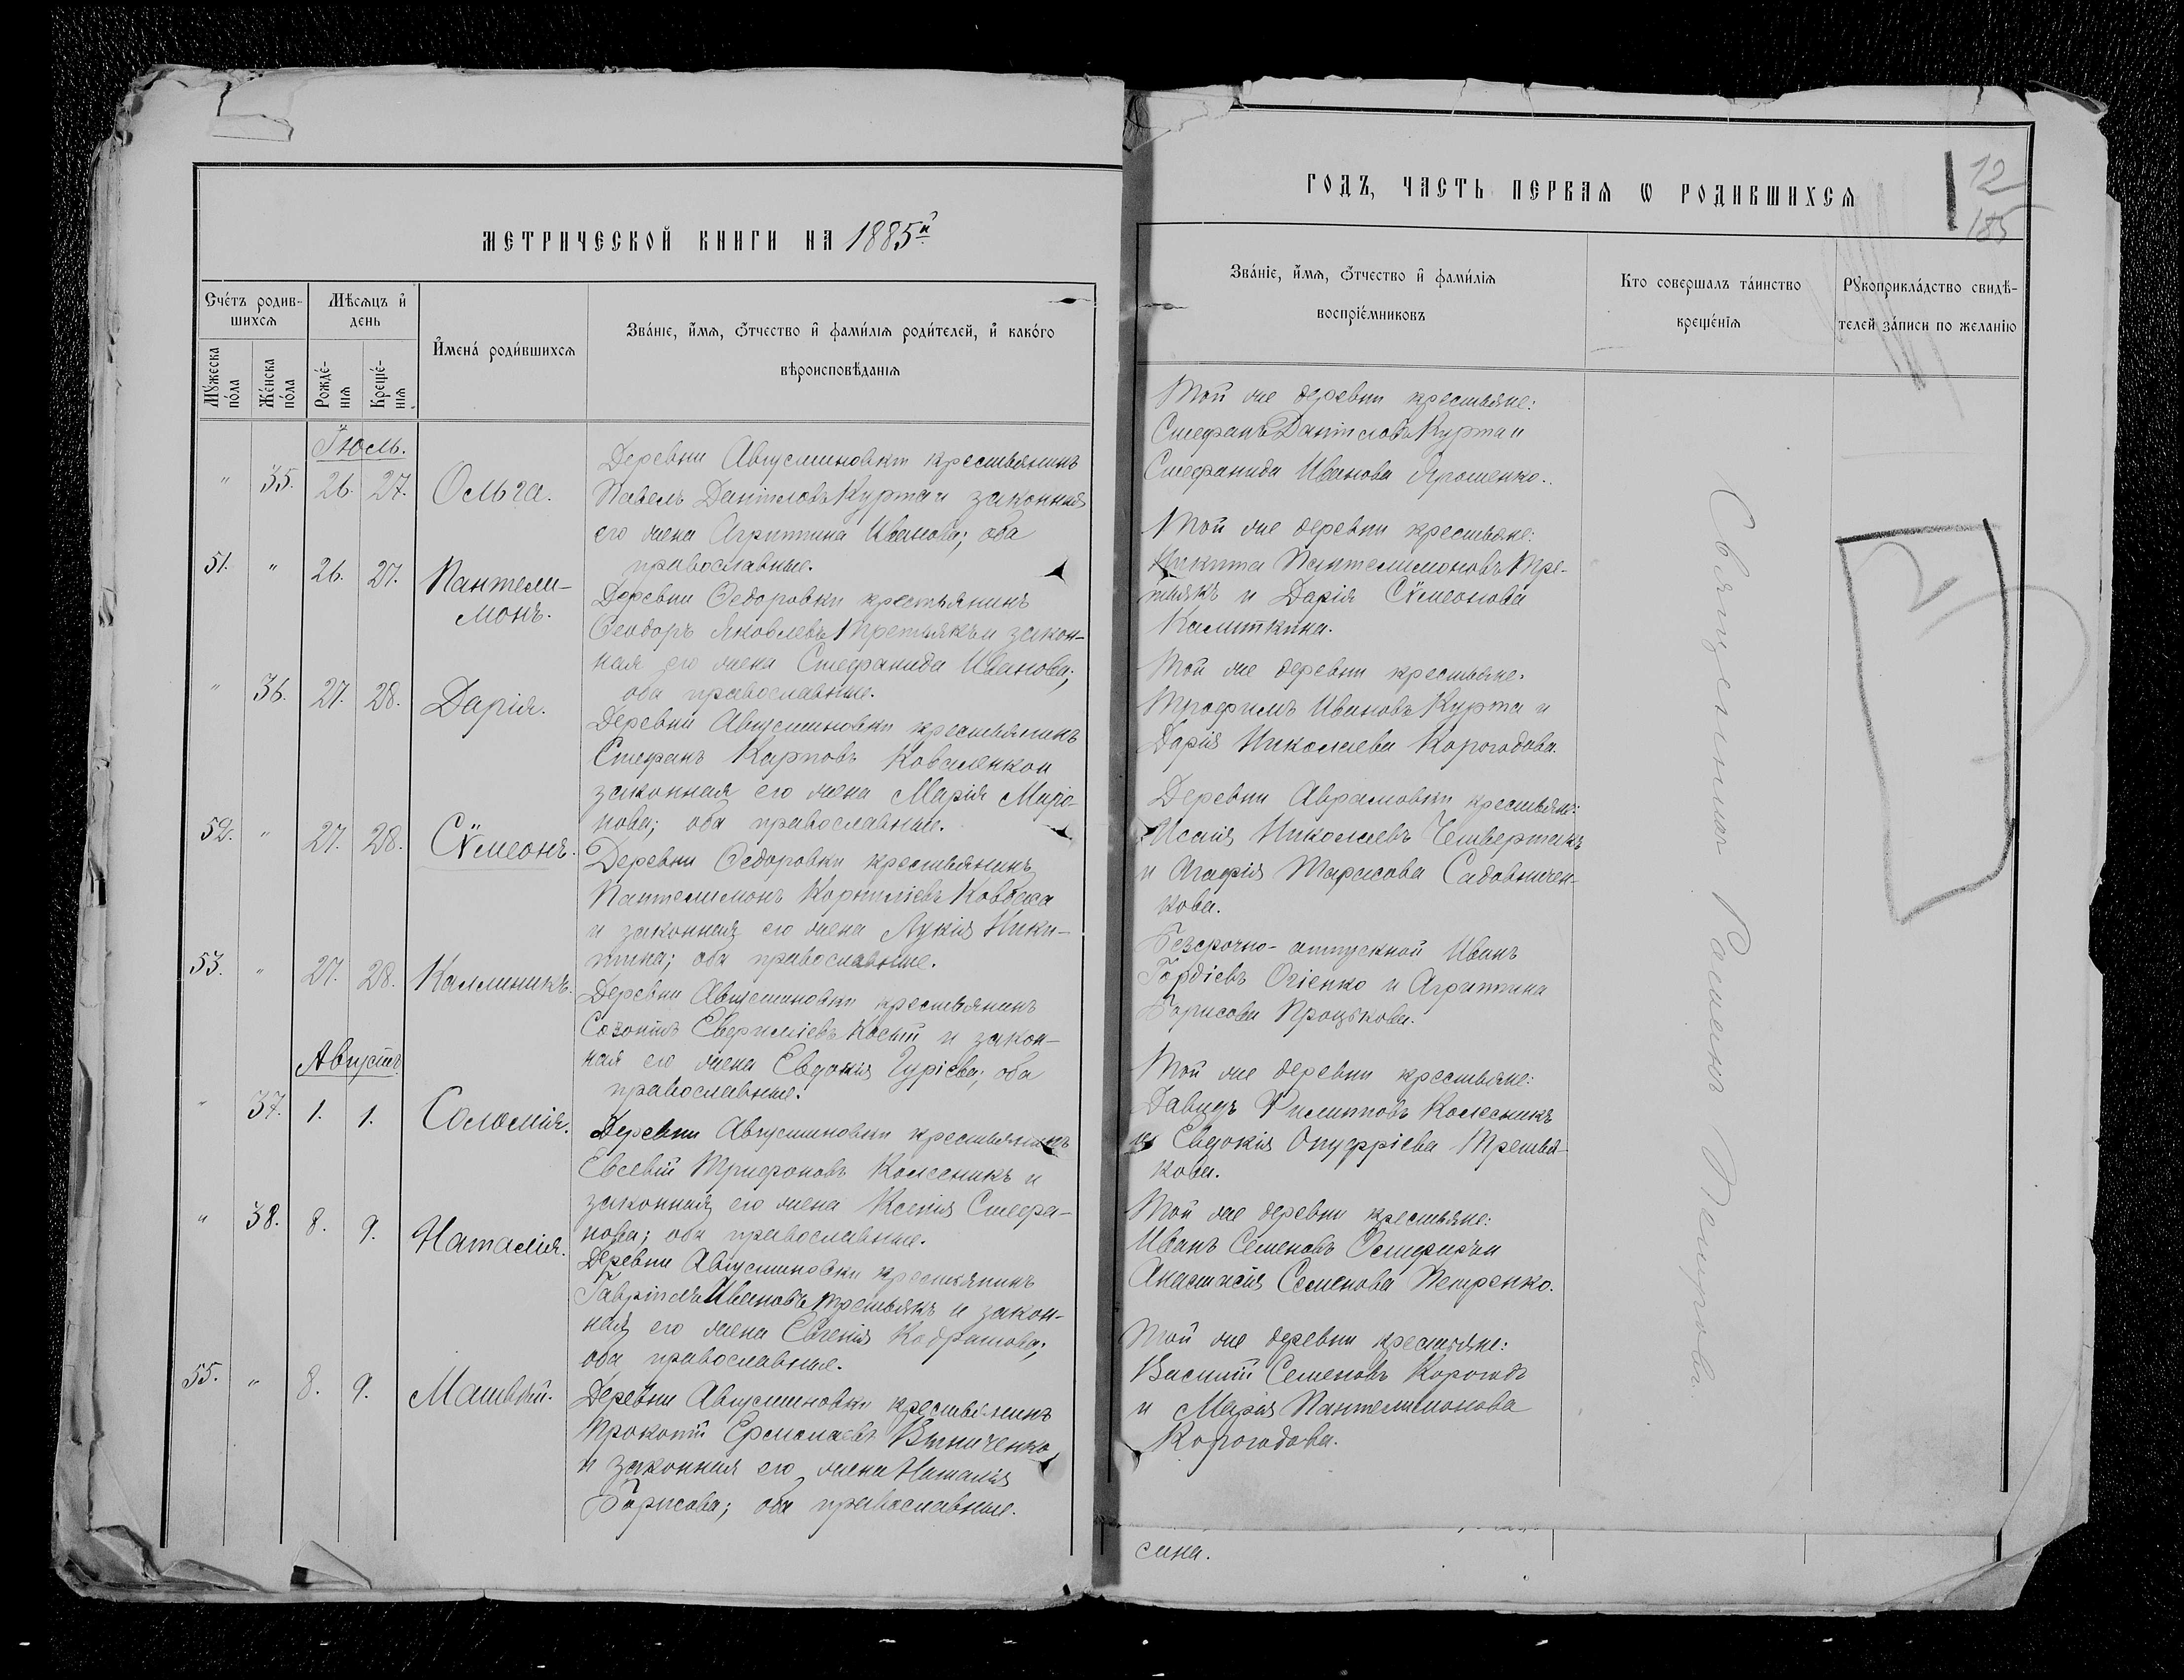 МЕТРИЧЕСКОЙ КНИГИ НА 1885й
Сче́тъ родив-
шихсѧ
Мѣсѧцъ и҆
день
Мꙋжеска
по́ла
Же́нска
по́ла
Рожде́-
нїѧ
Креще́-
нїѧ
И҆мена́ роди́вшихсѧ
Зва́нїе, и҆́мѧ, ѻ҆́тчество и҆ фами́лїѧ роди́телей, и҆ како́го
вѣроисповѣ́данїѧ
Іюль.
" 35. 26. 27. Ольга.
Деревни Августиновки крестьянинъ
Павелъ Даніиловъ Курта и законная
его жена Агриппина Иванова; оба
православные.
51. " 26. 27. Пантели-
монъ.
Деревни Ѳедоровки крестьянинъ
Ѳеодоръ Яковлевъ Третьякъ и закон-
ная его жена Стефанида Иванова;
оба православные.
" 36. 27. 28. Дарія.
Деревни Августиновки крестьянинъ
Стефанъ Карповъ Коваленко и
законная его жена Марія Миро-
нова; оба православные.
52. " 27. 28. Сѵмеонъ.
Деревни Ѳедоровки крестьянинъ
Пантелимонъ Корниліевъ Ковбаса
и законная его жена Лукія Ники-
тина; оба православные.
53. " 27. 28. Каллиникъ.
Деревни Августиновки крестьянинъ
Созонтъ и закон-
ная его жена Евдокія Гуріева; оба
православные.
Августъ
" 37. 1. 1. Соломія.
Деревни Августиновки крестьянинъ
Евсевій Трифоновъ Колесникъ и
законная его жена Ксенія Стефа-
нова; оба православные.
" 38. 8. 9. Наталія.
Деревни Августиновки крестьянинъ
Гавріилъ Ивановъ Третьякъ и закон-
ная его жена Евгенія Кодратова;
оба православные.
55. " 8. 9. Матвѣй.
Деревни Августиновки крестьянинъ
Прокопій Ермолаевъ Винниченко
и законная его жена Наталія
Борисова; оба православные.
ГОДЪ, ЧАСТЬ ПЕРВАѦ Ѡ РОДИВШИХСѦ
12
185
Зва́нїе, и҆́мѧ, ѻ҆́тчество и҆ фами́лїѧ
воспрїе́мниковъ
Кто соверша́лъ та́инство
креще́нїѧ
Рꙋкоприкла́дство свидѣ́-
телей за́писи по жела́нїю
Той же деревни крестьяне:
Стефанъ Даніиловъ Курта и
Стефанида Иванова Ярошенко.
Той же деревни крестьяне:
Никита Пантелимоновъ Тре-
тьякъ и Дарія Сѵмеонова
Калиткина.
Той же деревни крестьяне:
Трофимъ Ивановъ Курта и
Дарія Николаева Корогодова.
Деревни Аврамовки крестьяне:
Исаія Николаевъ Четвертакъ
и Агафія Тарасова Садовничен-
кова.
Безсрочно-отпускной Иванъ
Гордіевъ Огіенко и Агриппина
Борисова Процькова.
Той же деревни крестьяне:
Давидъ Филипповъ Колесникъ
и Евдокія Онуфріева Третья-
кова.
Той же деревни крестьяне:
Иванъ Семеновъ и
Анастасія Семенова Петренко.
Той же деревни крестьяне:
Василій Семеновъ Корогодъ
и Марія Пантелимонова
Корогодова.
Священникъ Петровъ.
сина.